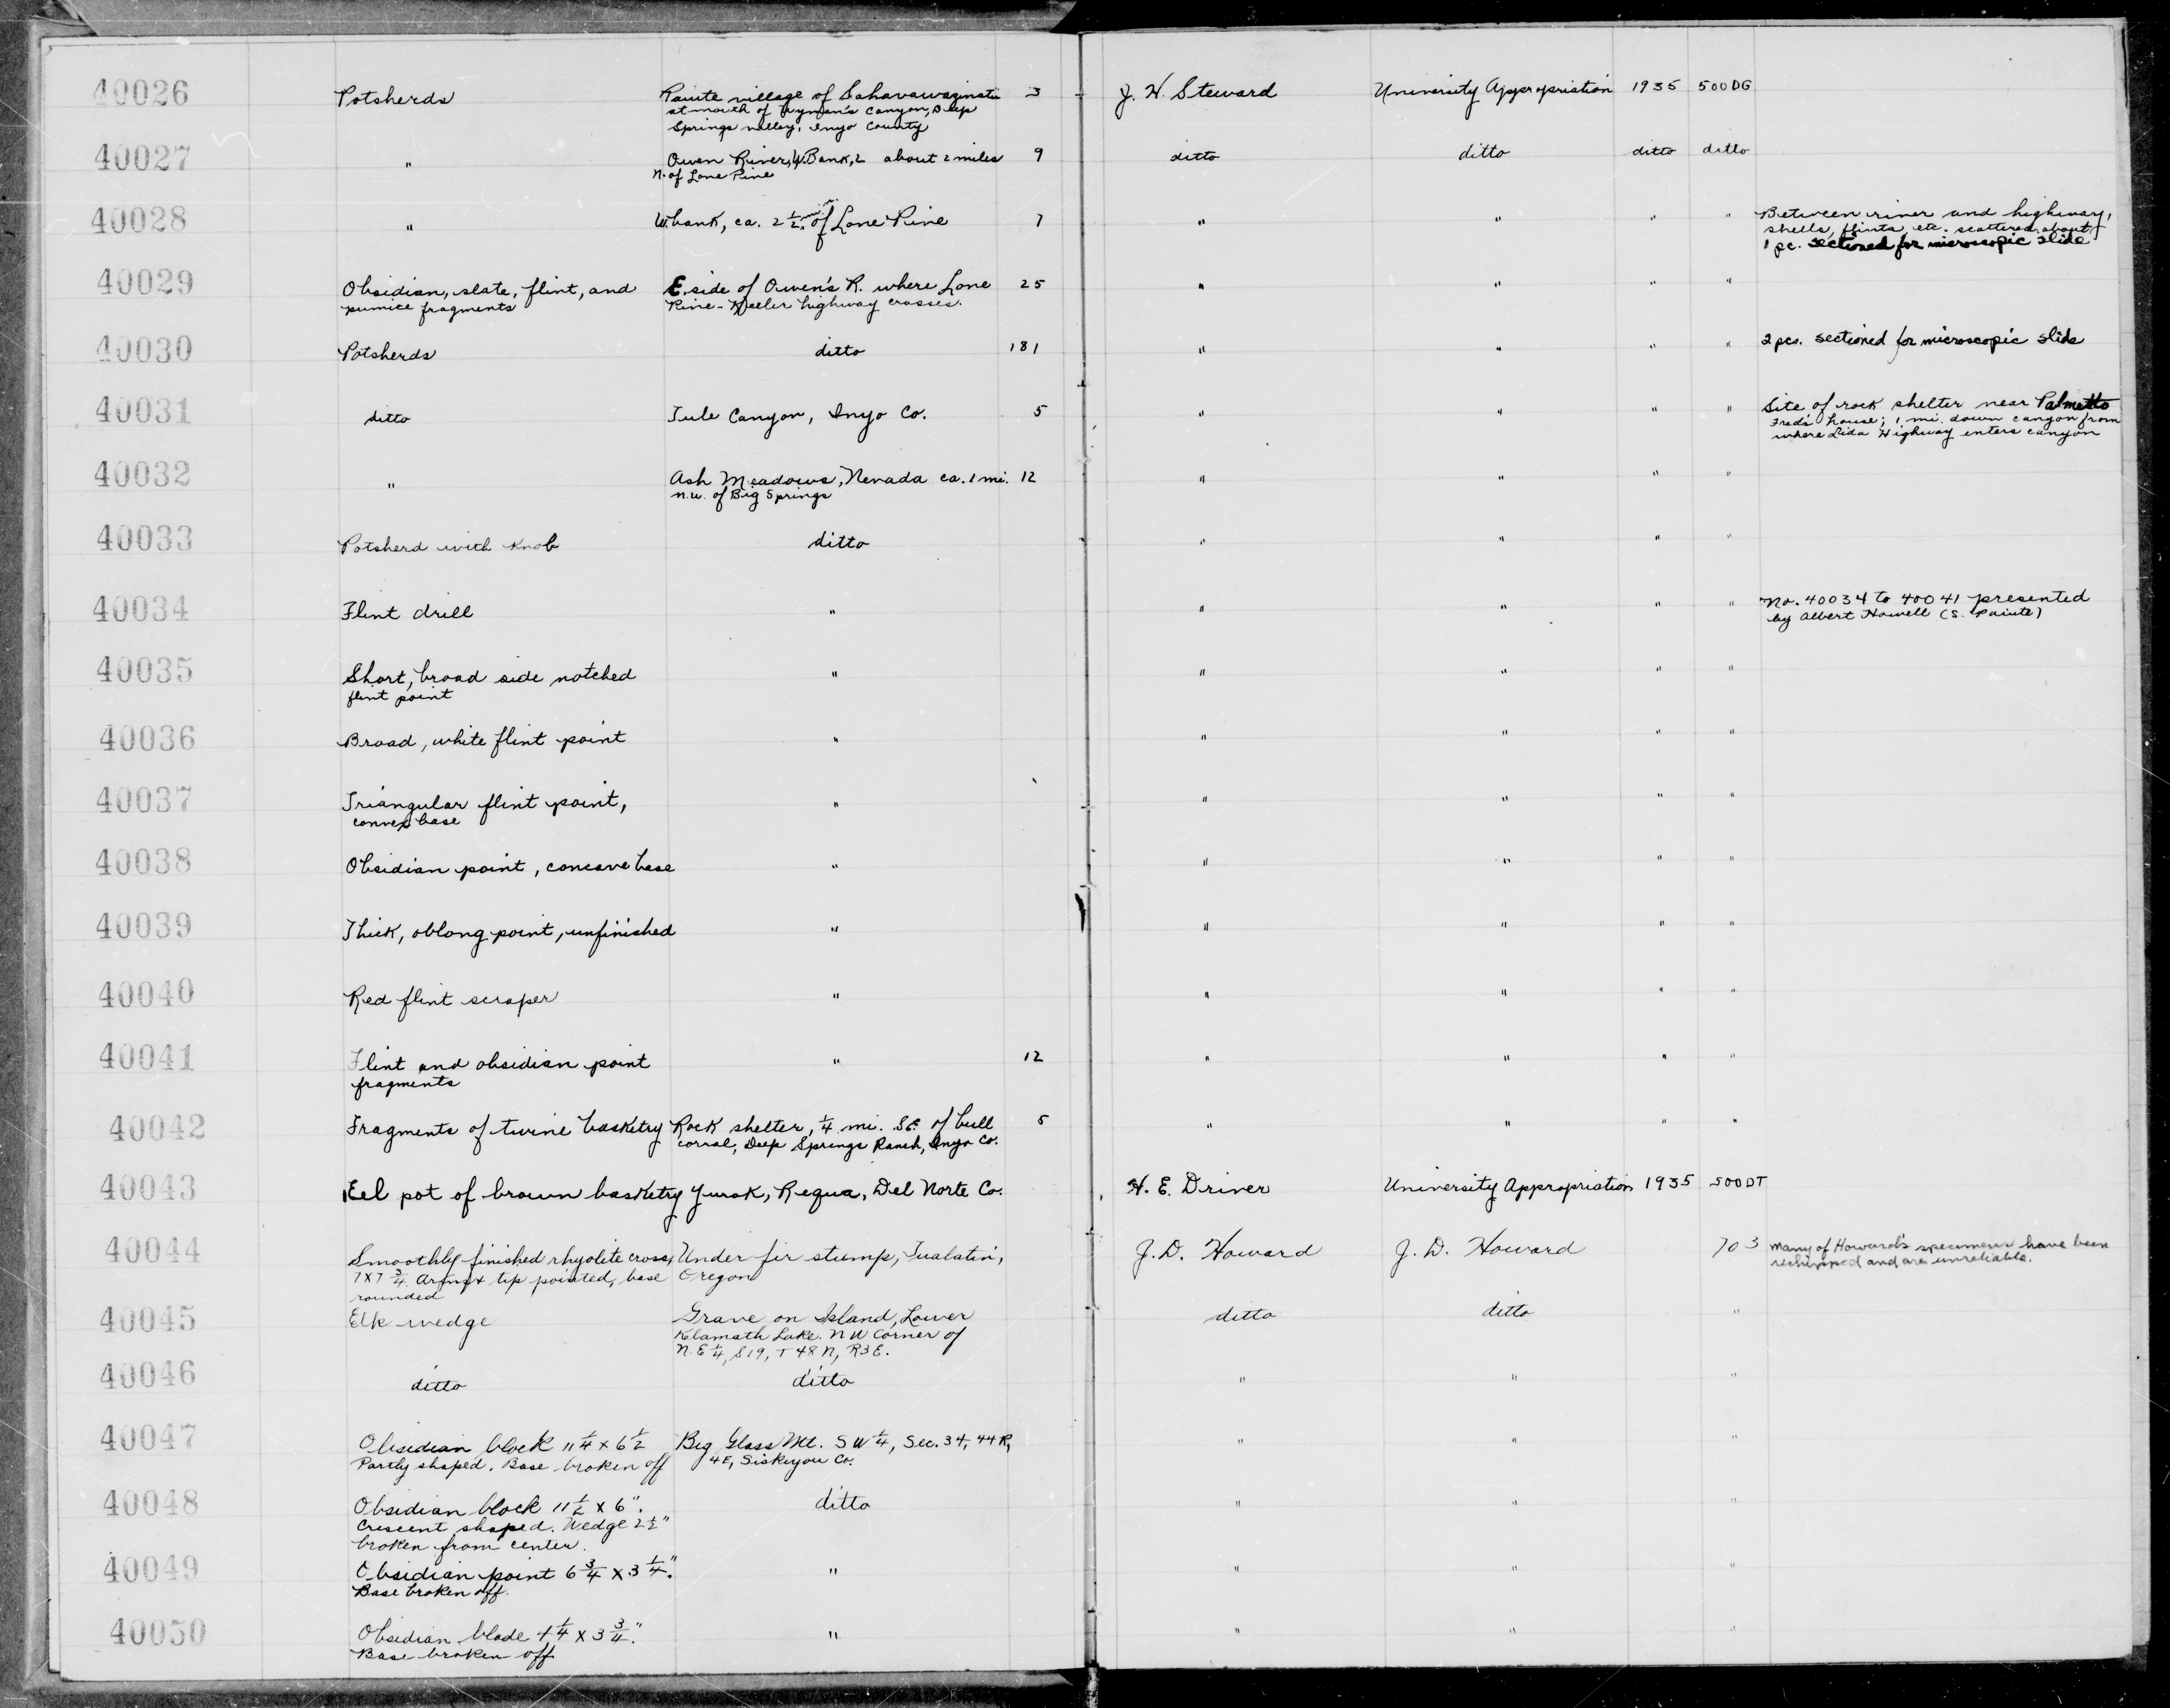 40026 Potsherds Paiute village of 3 J. H. Steward University Appropriation 1935 500DG
at mouth of Wyman's Canyon, Deep
Springs valley, Inyo County
40027 " Owen River, W. Bank, 2 about 2 miles 9 ditto ditto ditto ditto
N. of Lone Pine
40028 " W. bank, ca. 2 1/2 mi. N. of Lone Pine 7 " " " " Between river and highway,
shells, flints, etc. scattered about
1 pc. sectioned for microscopic slide
40029 Obsidian, slate, flint, and E. side of Owen's R. where Lone 25 " " " "
pumice fragments Pine-Keeler highway crosses.
40030 Potsherds ditto 181 " " " " 2 pcs. sectioned for microscopic slide
40031 ditto Tule Canyon, Inyo Co. 5 " " " " Site of rock shelter near Palmetto
Fred's house; 1 mi. down canyon from
where Lida Highway enters canyon
40032 " Ash Meadows, Nevada ca. 1 mi. 12 " " " "
n.w. of Big Springs
40033 Potsherd with knob ditto " " " "
40034 Flint drill " " " " " No. 40034 to 40041 presented
by Albert Howell (S. Paiute)
40035 Short, broad side notched " " " " "
flint point
40036 Broad, white flint point " " " " "
40037 Triangular flint point, " " " " "
convex base
40038 Obsidian point, concave base " " " " "
40039 Thick, oblong point, unfinished " " " " "
40040 Red flint scraper " " " " "
40041 Flint and obsidian point " 12 " " " "
fragments
40042 Fragments of twine basketry Rock shelter, 1/4 mi. SE. of bull 5 " " " "
corral, Deep Springs Ranch, Inyo Co.
40043 Eel pot of brown basketry Yurok, Requa, Del Norte Co. H. E. Driver University Appropriation 1935 500DT
40044 Smoothly finished rhyolite cross, Under fir stump, Tualatin, J. D. Howard J. D. Howard 703 Many of Howard's specimens have been
7x7 3/4. Arms & tip pointed, base Oregon rechipped and are unreliable.
rounded
40045 Elk wedge Grave on Island, Lower ditto ditto "
Klamath Lake. NW Corner of
N.E 1/4, S19, T48N, R3E.
40046 ditto ditto " " "
40047 Obsidian block 11 1/4 x 6 1/2 Big Glass Mt. SW 1/4, Sec. 34, 44R, " " "
Partly shaped. Base broken off 4E, Siskiyou Co.
40048 Obsidian block 11 1/2 x 6". ditto " " "
Crescent shaped. Wedge 2 1/2"
broken from center.
40049 Obsidian point 6 3/4 x 3 1/4". " " " "
Base broken off.
40050 Obsidian blade 4 1/4 x 3 3/4". " " " "
Base broken off